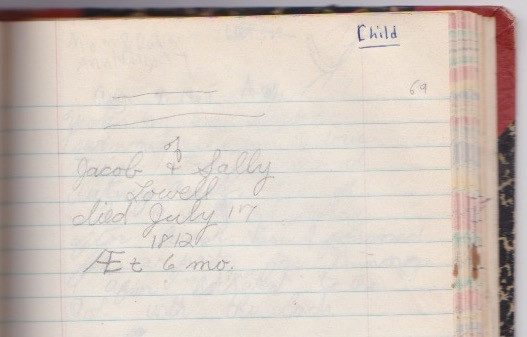 Child
69
of
Jacob & Sally
Lowell
died July 17
1812
Æt 6 mo.